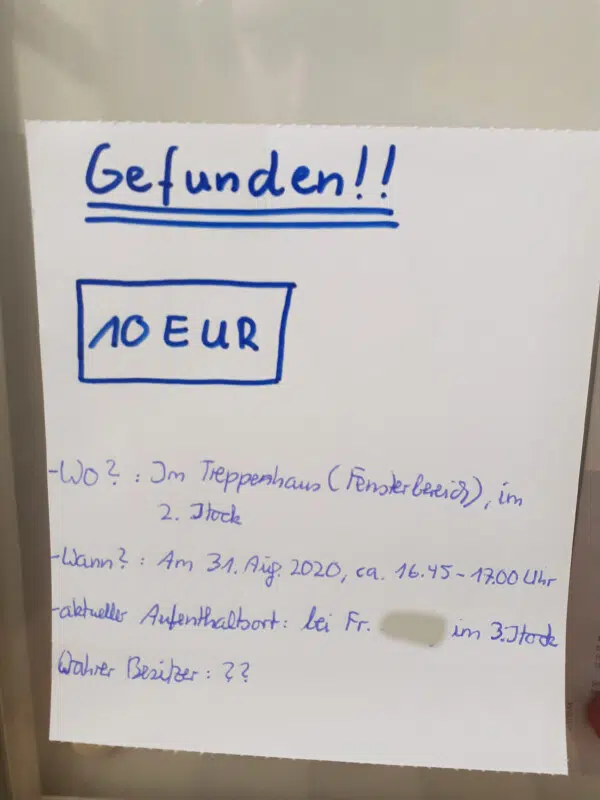 Gefunden!!
10 EUR
-Wo? : Im Treppenhaus (Fensterbereich), im
2. Stock
-Wann? : Am 31. Aug. 2020, ca. 16.45 - 17.00 Uhr
-aktueller Aufenthaltsort: bei Fr. im 3. Stock
Wahrer Besitzer: ??